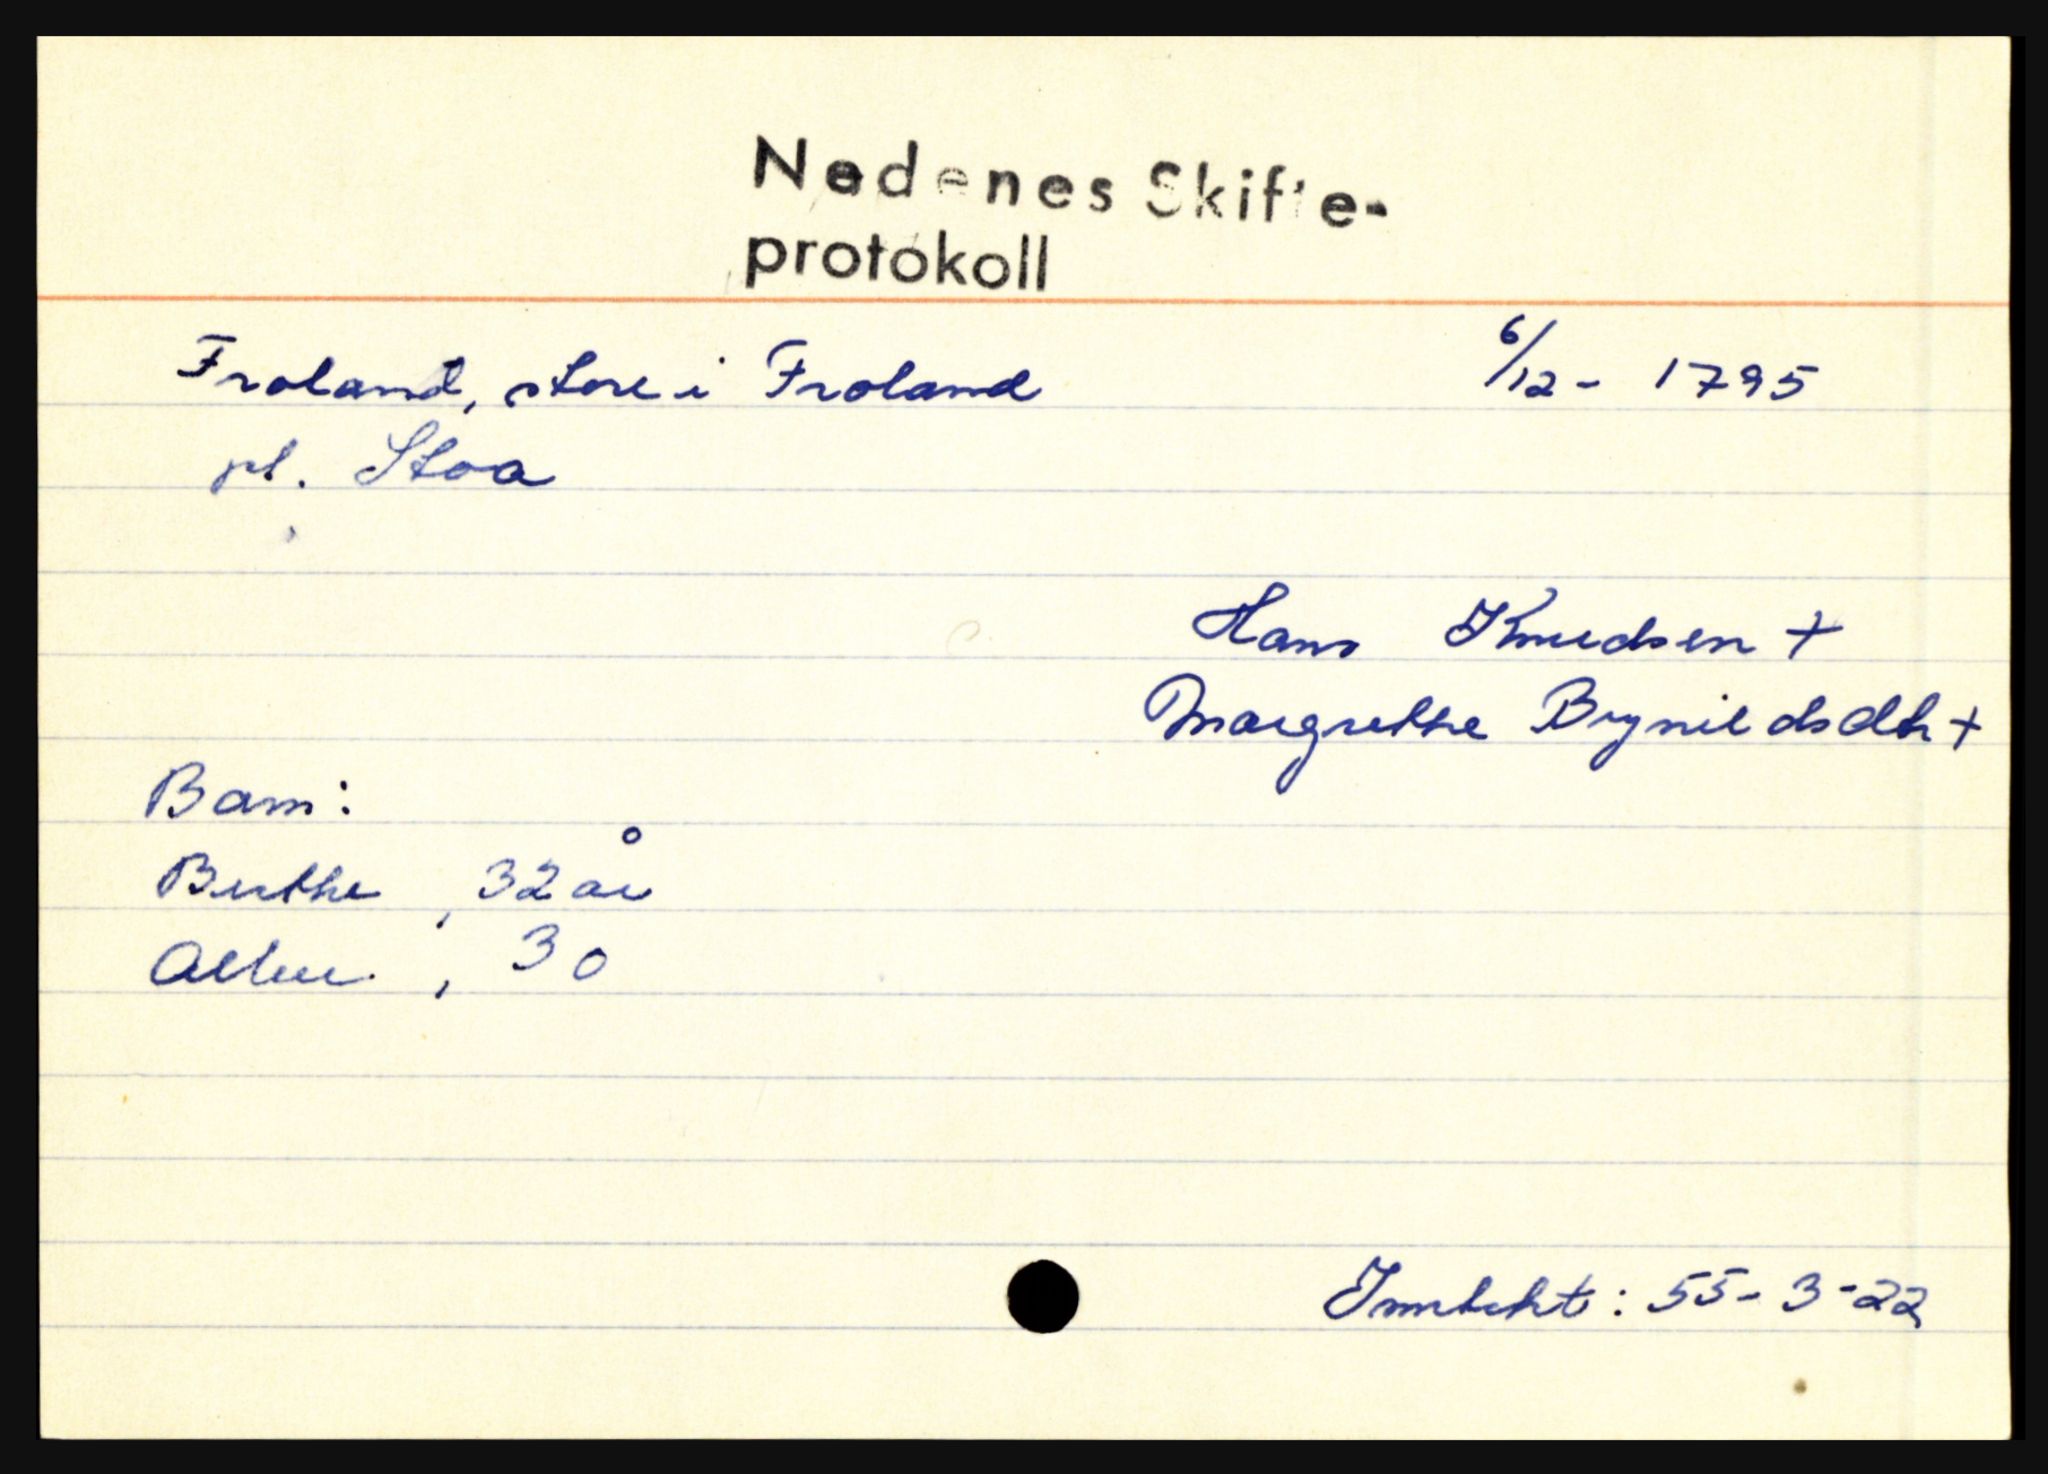 Nedenes Skifte-
protokoll
Froland, store i Froland 6/12 - 1795
pl. Stoa
Hans Knudsen +
Margrethe Brynildsdtr +
Barn:
Berthe, 32 år
, 30
Inntekt: 55-3-22